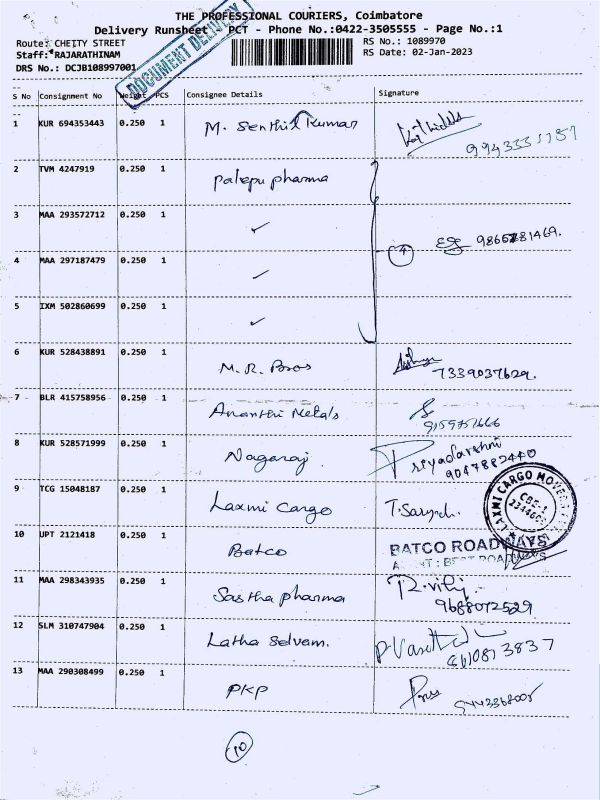 THE PROFESSIONAL COURIERS, Coimbatore
Delivery Runsheet - PCT - Phone No.:0422-3505555 - Page No.:1
Route: CHETTY STREET RS No.: 1089970
Staff: RAJARATHINAM RS Date: 02-Jan-2023
DRS No.: DCJB108997001
DOCUMENT DELIVERY
S No Consignment No Weight PCS Consignee Details Signature
1 KUR 694353443 0.250 1 M. Senthil Kumar
2 TVM 4247919 0.250 1 Palepu pharma
3 MAA 293572712 0.250 1 ✓
4 MAA 297187479 0.250 1 ✓ 4
5 IXM 502860699 0.250 1 ✓
6 KUR 528438891 0.250 1 M. R. Bros
7339037629.
7 BLR 415758956 0.250 1 Ananthi Metals
8 KUR 528571999 0.250 1 Nagaraj. Priyadarshni
9047882440
9 TCG 15048187 0.250 1 Laxmi Cargo
LAXMI CARGO CBE-1
10 UPT 2121418 0.250 1 Batco BATCO ROADWAYS
11 MAA 298343935 0.250 1 Sastha pharma
9688072529
12 SLM 310747904 0.250 1 Latha Selvam.
13 MAA 290308499 0.250 1 PKP
10